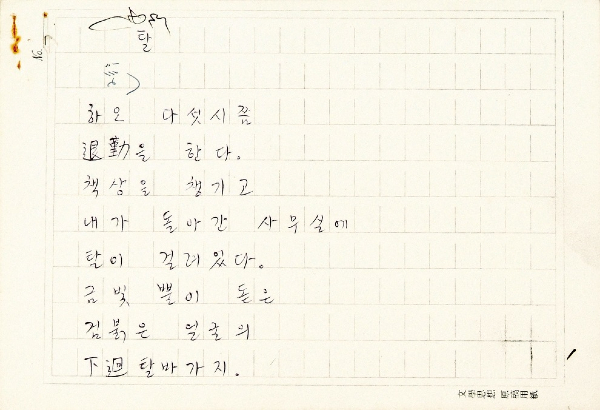 탈
하오 다섯시쯤
退勤을 한다.
책상을 챙기고
내가 돌아간 사무실에
탈이 걸려있다.
금빛 뿔이 돋은
검붉은 얼굴의
下廻 탈바가지.